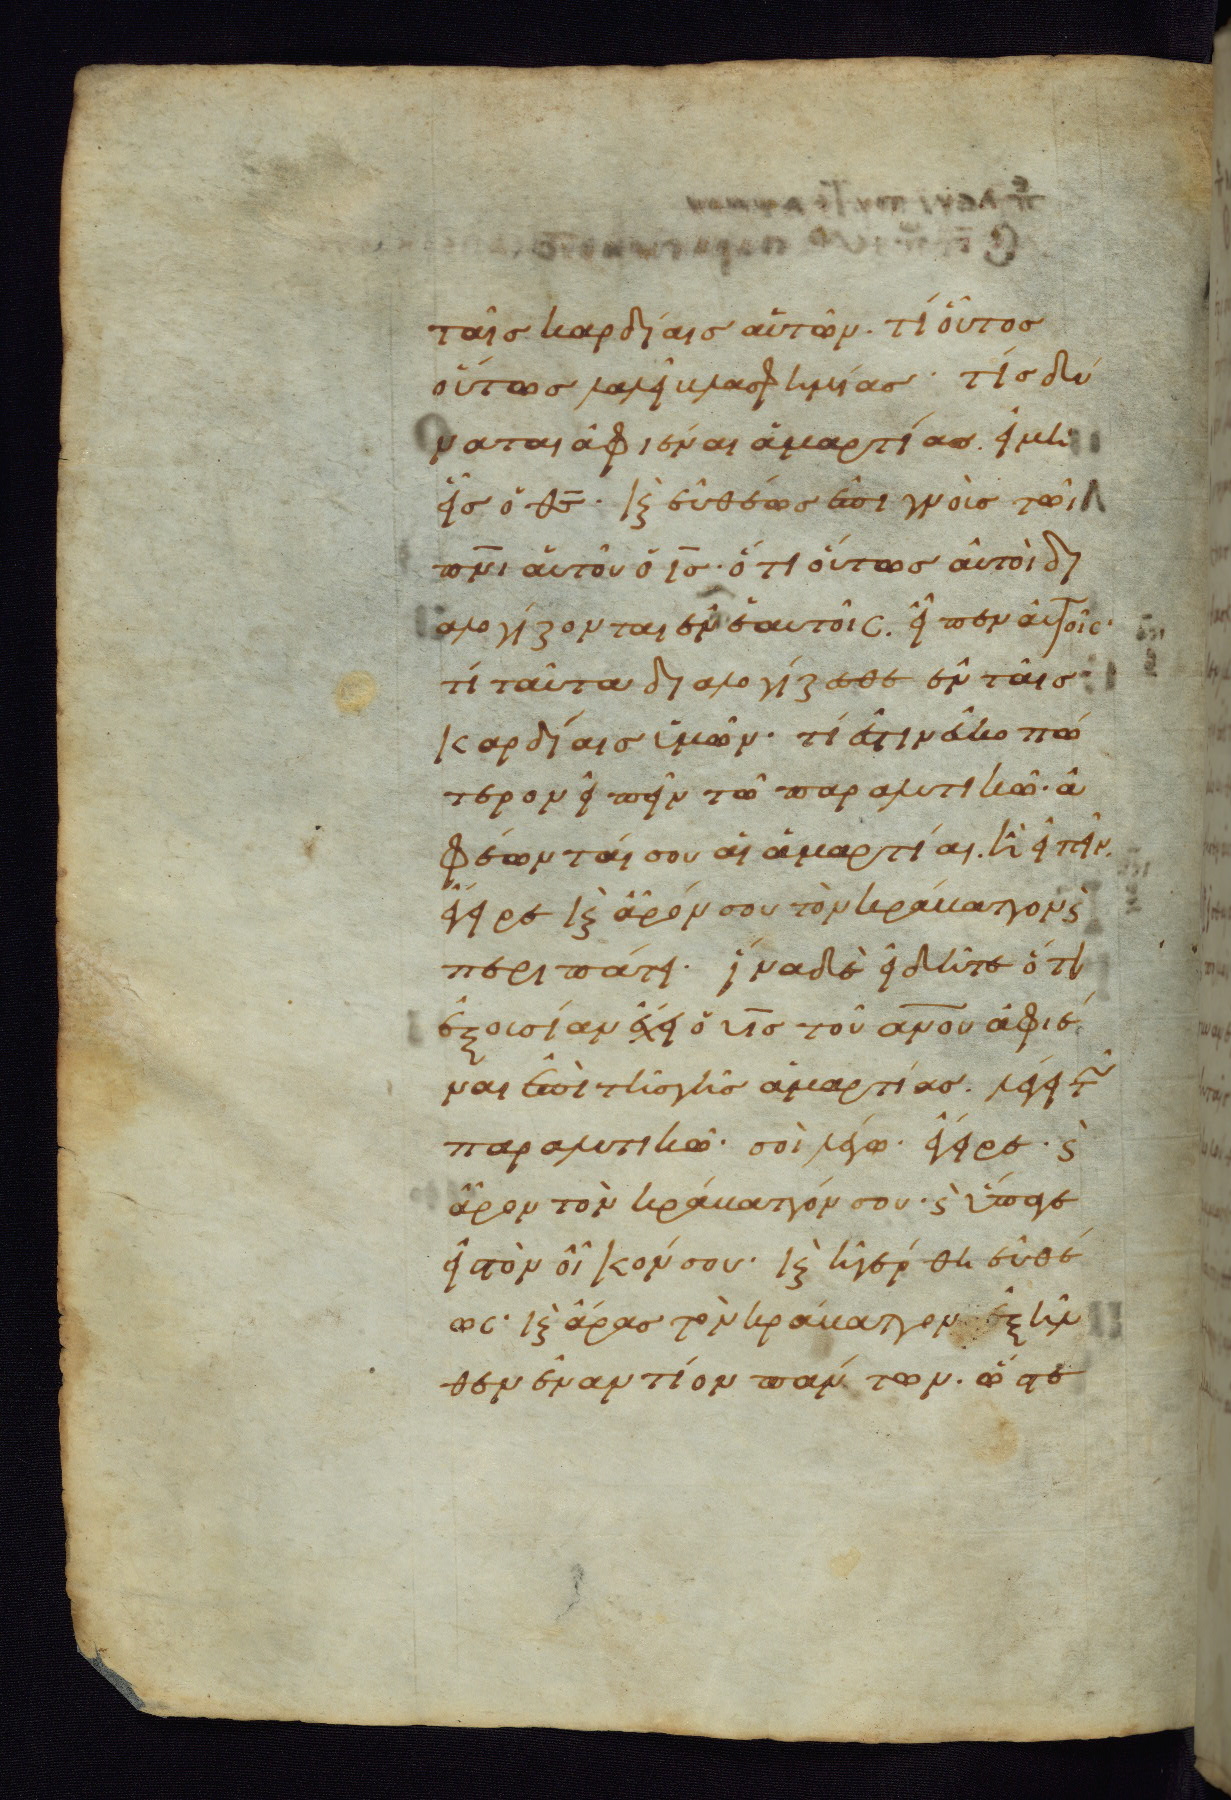 ταῖς καρδίαις αὐτῶν· τί οὗτος
οὕτως λαλεῖ βλασφημίας· τίς δύ
ναται ἀφιέναι ἁμαρτίας. εἰ μὴ
εἷς ὁ θ̅ς̅· κ̀ εὐθέως ἐπιγνοὺς τῶι
π̅ν̅ι αὐτοῦ ὁ ι̅ς̅· ὅτι οὕτως αὐτοὶ δι
αλογίζονται ἐν ἑαυτοῖς. εἶπεν αὐτοῖς·
τί ταῦτα διαλογίζεσθε ἐν ταῖς
καρδίαις ὑμῶν· τί ἐστιν εὐκοπώ
τερον εἰπεῖν τῶ παραλυτικῶ· ἀ
φέωνταί σου αἱ ἁμαρτίαι. ἢ εἰπεῖν.
ἔγειρε κ̀ ἆρόν σου τὸν κράβαττον ϛ̀
περιπάτει· ἵνα δὲ εἰδῆτε ὅτι
ἐξουσίαν ἔχει ὁ υ̅ς̅ τοῦ α̅ν̅ου ἀφιέ
ναι ἐπὶ τῆς γῆς ἁμαρτίας. λέγει τῶ
παραλυτικῶ· σοὶ λέγω· ἔγειρε· ϛ̀
ἆρον τὸν κράβαττόν σου· ϛ̀ ὕπαγε
εἰς τὸν οἶκόν σου· κ̀ ἠγέρθη εὐθέ
ως· κ̀ ἄρας τὸν κράβαττον ἐξῆλ
θεν ἐναντίον πάντων. ὥστε